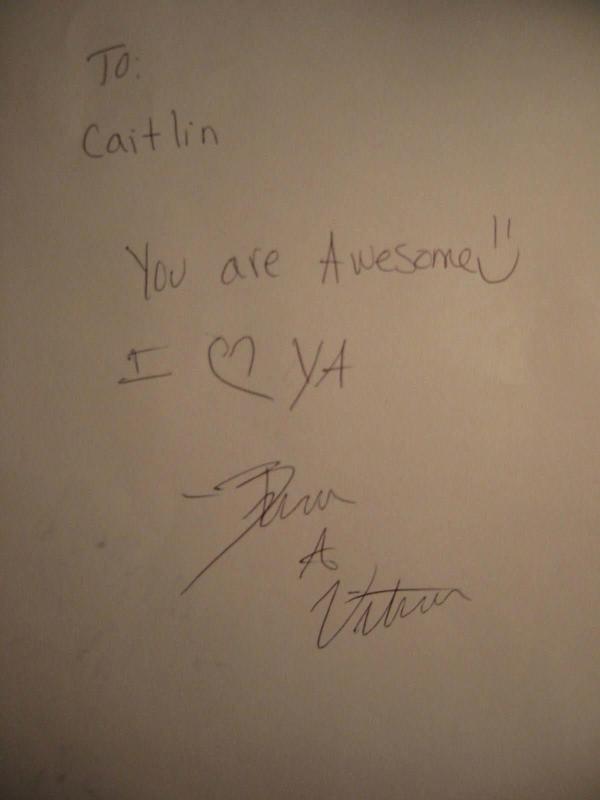 To:
Caitlin
You are Awesome
I ♡ YA
A